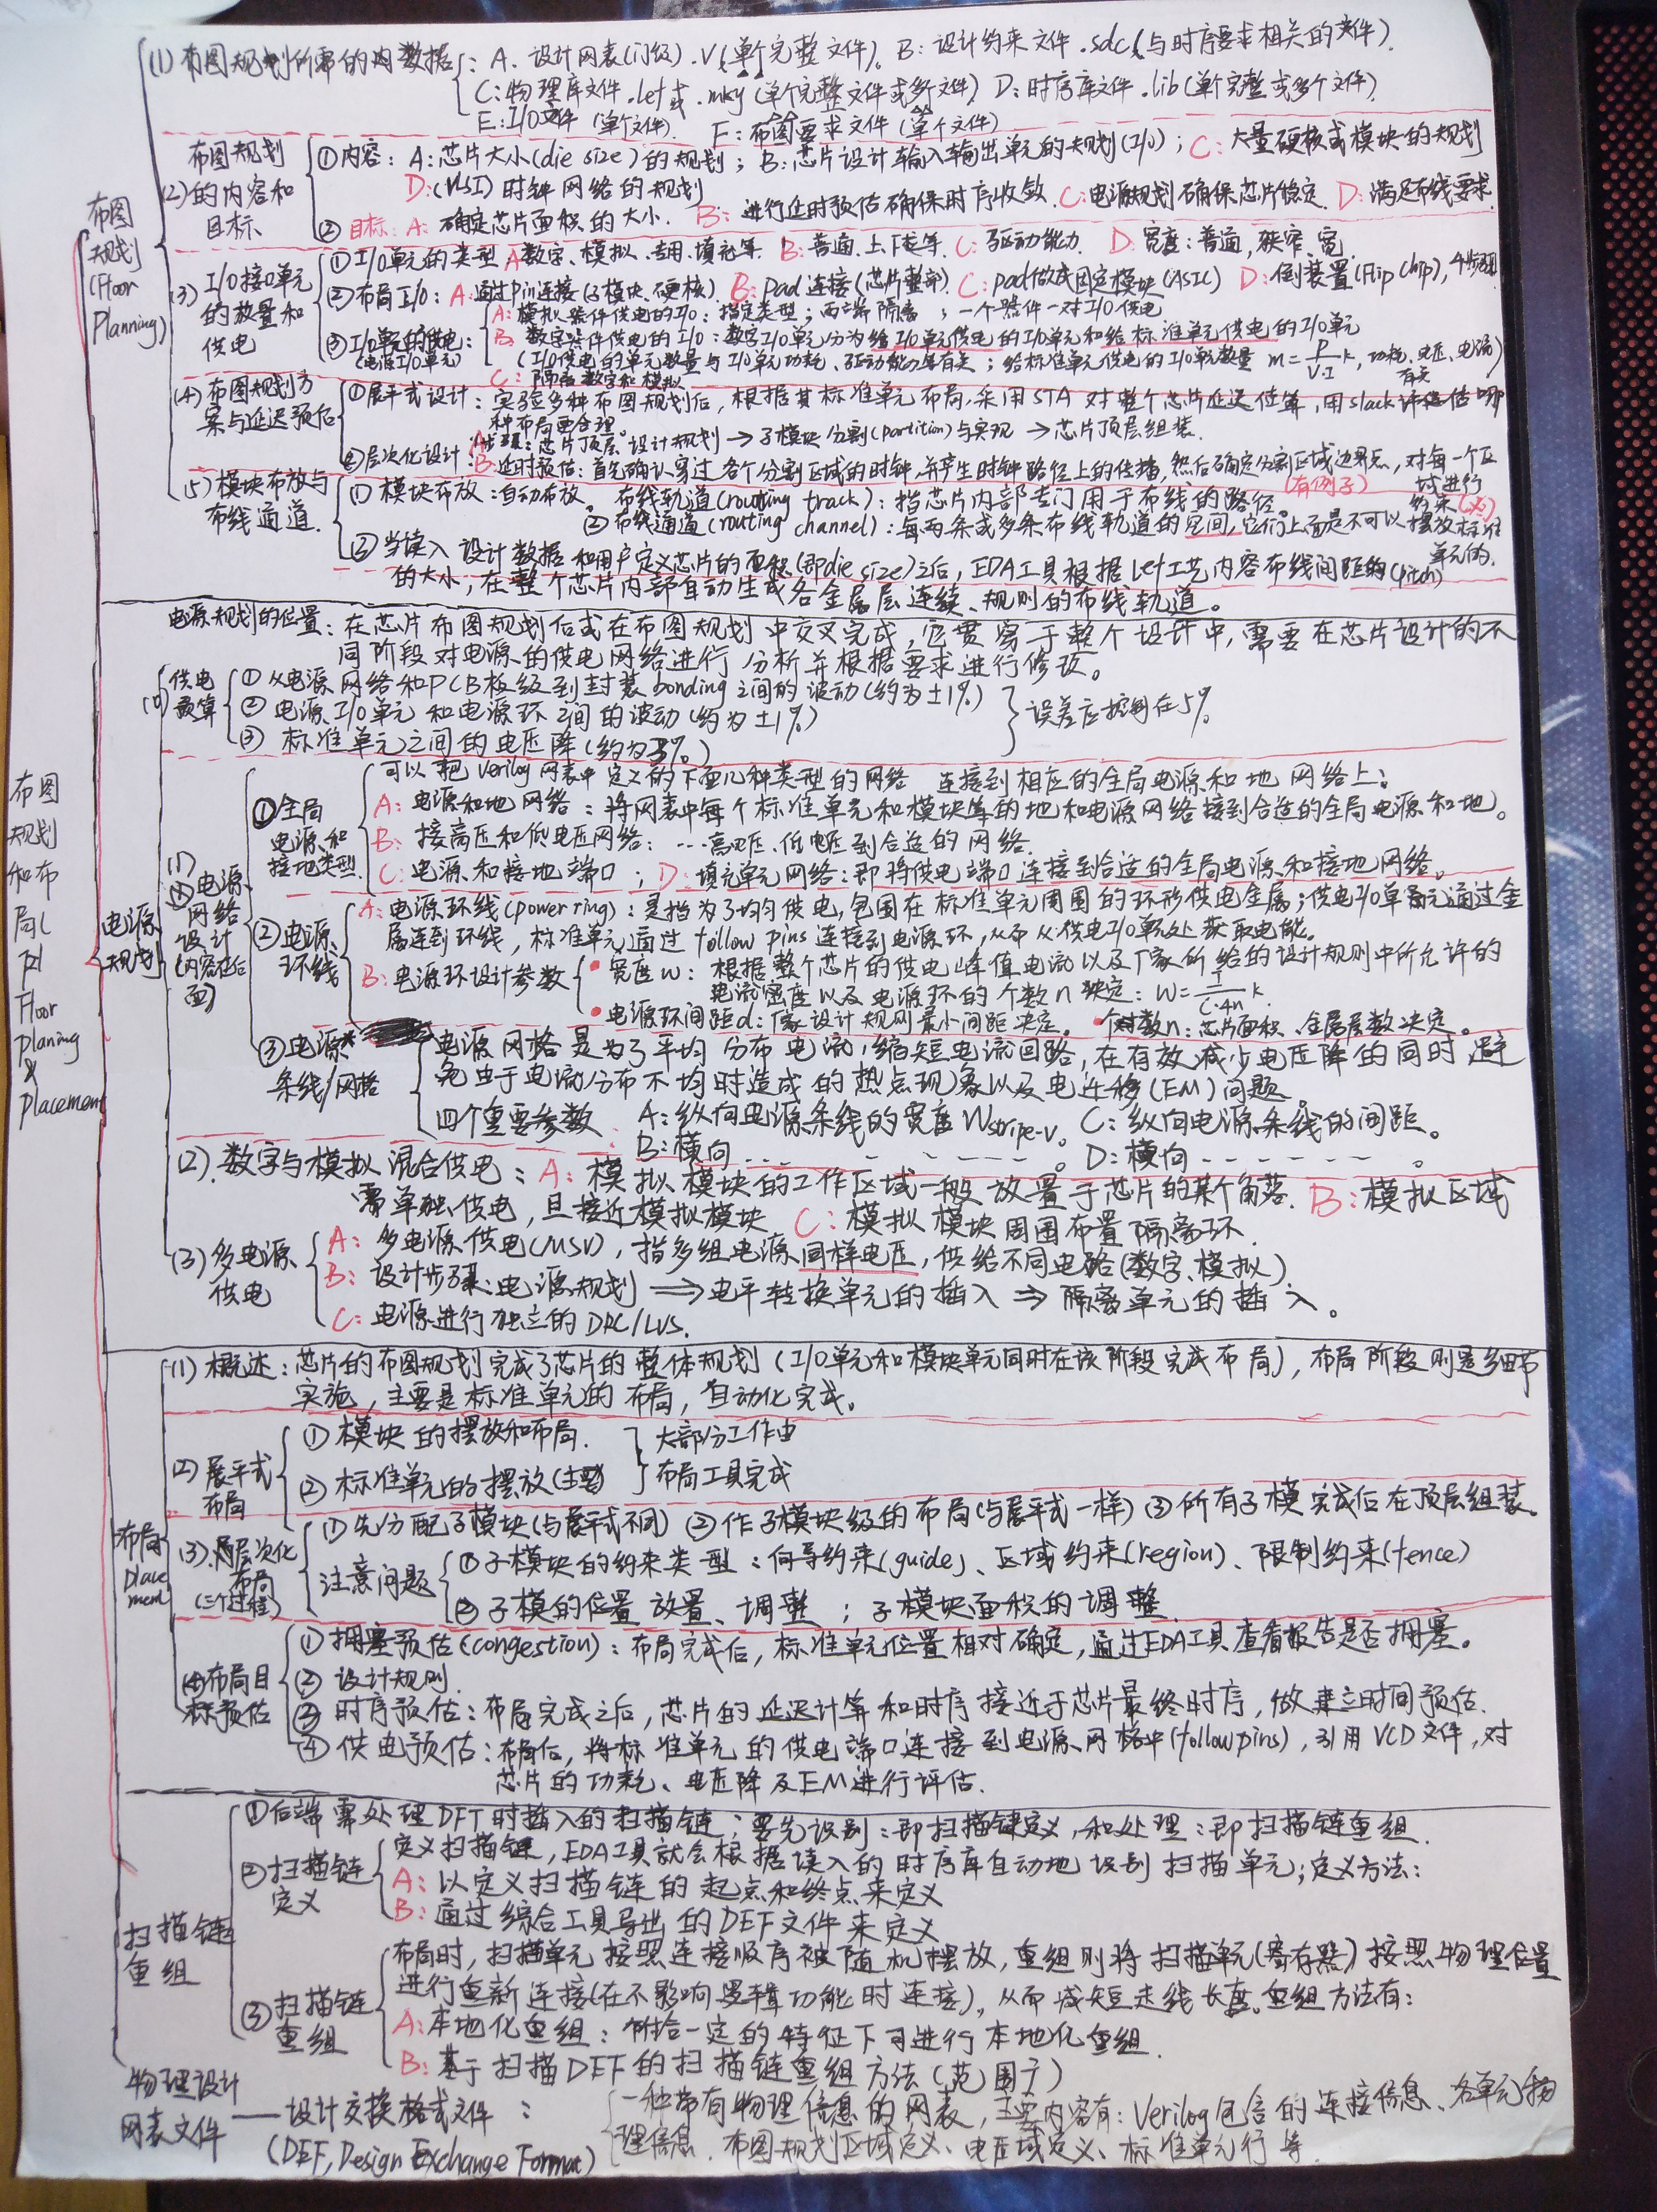 布图规划和布局(
Floor
planing
&
placement
布图规划(Floor Planning)
(1) 布图规划所需的内数据: A. 设计网表(门级) .V (单个完整文件)。 B: 设计约束文件 .sdc (与时序要求相关的文件).
C: 物理库文件 .lef 或 .mky (单个完整文件或多个文件) D: 时序库文件 .lib (单个完整或多个文件)
E: I/O文件 (单个文件). F: 布图要求文件 (单个文件)
(2) 布图规划的内容和目标
①内容: A: 芯片大小(die size)的规划; B: 芯片设计输入输出单元的规划(I/o); C: 大量硬核或模块的规划
D: (VLSI) 时钟网络的规划
② 目标: A: 确定芯片面积的大小. B: 进行延时预估确保时序收敛. C: 电源规划确保芯片稳定. D: 满足布线要求.
(3) I/O接口单元的放置和供电
① I/O单元的类型 A 数字、模拟、专用、填充等. B: 普通、上下拉等. C: 驱动能力. D: 宽度: 普通, 狭窄, 宽
② 布局I/O: A: 通过pin连接(子模块、硬核) B: Pad连接(芯片整部) C: pad做成固定模块(ASIC) D: 倒装置(Flip Chip),
③ I/O单元的供电: (电源I/O单元)
A: 模拟器件供电的I/O: 指定类型; 两端隔离; 一个器件一对I/O供电
B: 数字器件供电的I/O: 数字I/O单元分为给I/O单元供电的I/O单元和给标准单元供电的I/O单元
(I/O供电的单元数量与I/O单元功耗、驱动能力等有关; 给标准单元供电的I/O单元数量 m = P/(V·I) k, 功耗、电压、电流有关)
C: 隔离数字和模拟
(4) 布图规划方案与延迟预估
①展平式设计: 实验多种布图规划后, 根据其标准单元布局, 采用STA对整个芯片延迟估算, 用slack评估哪
种布局更合理。
②层次化设计: A 步骤: 芯片顶层设计规划 → 子模块分割(partition)与实现 → 芯片顶层组装.
B: 延时预估: 首先确认穿过各个分割区域的时钟, 并产生时钟路径上的传播, 然后确定分割区域边界点, 对每一个区域进行约束(义)
(有例子)
(5) 模块布放与布线通道.
① 模块布放: 自动布放. 布线轨道(routing track): 指芯片内部专门用于布线的路径。
② 布线通道(routing channel): 每两条或多条布线轨道的空间, 它们上面是不可以摆放标准单元的.
③ 当读入设计数据和用户定义芯片的面积(即die size)之后, EDA工具根据lef工艺内容布线间距的(pitch)
的大小, 在整个芯片内部自动生成各金属层连续、规则的布线轨道。
电源规划
电源规划的位置: 在芯片布图规划后或在布图规划中交叉完成, 它贯穿于整个设计中, 需要在芯片设计的不
同阶段对电源的供电网络进行分析并根据要求进行修改。
供电预算
① 从电源网络和PCB板级到封装bonding之间的波动(约为±1%)
② 电源I/O单元和电源环之间的波动(约为±1%)
③ 标准单元之间的电压降(约为3%)
误差应控制在5%
(1) 电源网络设计(内容在后面)
①全局电源和接地类型
可以把verilog网表中定义的下面几种类型的网络连接到相应的全局电源和地网络上:
A: 电源和地网络: 将网表中每个标准单元和模块等的地和电源网络接到合适的全局电源和地。
B: 接高压和低电压网络: ---高电压、低电压到合适的网络.
C: 电源和接地端口; D: 填充单元网络: 即将供电端口连接到合适的全局电源和接地网络。
②电源环线
A: 电源环线(power ring): 是指为了均匀供电, 包围在标准单元周围的环形供电金属; 供电I/O单元通过金
属连到环线, 标准单元通过 follow pins 连接到电源环, 从而从供电I/O单元处获取电能。
B: 电源环设计参数
• 宽度w: 根据整个芯片的供电峰值电流以及厂家所给的设计规则中所允许的
电流密度以及电源环的个数n决定: W = I/(C·4n) k.
• 电源环间距d: 厂家设计规则最小间距决定. • 个对数n: 芯片面积、金属层数决定。
③电源条线/网格
电源网格是为了平均分布电流, 缩短电流回路, 在有效减少电压降的同时避
免由于电流分布不均时造成的热点现象以及电迁移(EM)问题。
四个重要参数 A: 纵向电源条线的宽度 Wstripe-v。 C: 纵向电源条线的间距。
B: 横向 - - - - - - - 。 D: 横向 - - - - - - 。
(2). 数字与模拟混合供电: A: 模拟模块的工作区域一般放置于芯片的某个角落. B: 模拟区域
需单独供电, 且接近模拟模块 C: 模拟模块周围布置隔离环.
(3) 多电源供电
A: 多电源供电(MSV), 指多组电源同样电压, 供给不同电路(数字、模拟).
B: 设计步骤: 电源规划 ⇒ 电平转换单元的插入 ⇒ 隔离单元的插入。
C: 电源进行独立的DRC/LVS.
布局 placement
(1) 概述: 芯片的布图规划完成了芯片的整体规划(I/O单元和模块单元同时在该阶段完成布局), 布局阶段则是多细节
实施, 主要是标准单元的布局, 自动化完成。
(2) 展平式布局
① 模块的摆放和布局.
② 标准单元的摆放(主要)
大部分工作由
布局工具完成
(3). 层次化布局(三个过程)
① 先分配子模块(与展平式不同) ② 作子模块级的布局(与展平式一样) ③ 所有子模完成后在顶层组装.
注意问题
① 子模块的约束类型: 向导约束(guide)、区域约束(region)、限制约束(fence)
② 子模的位置放置、调整; 子模块面积的调整.
(4) 布局目标预估
① 拥塞预估(congestion): 布局完成后, 标准单元位置相对确定, 通过EDA工具查看报告是否拥塞。
② 设计规则.
③ 时序预估: 布局完成之后, 芯片的延迟计算和时序接近于芯片最终时序, 做建立时间预估.
④ 供电预估: 布局后, 将标准单元的供电端口连接到电源网格中(follow pins), 引用VCD文件, 对
芯片的功耗、电压降及EM进行评估.
扫描链重组
①后端需处理DFT时插入的扫描链: 要先识别: 即扫描链定义, 和处理: 即扫描链重组.
②扫描链定义
定义扫描链, EDA工具就会根据填入的时序库自动地识别扫描单元; 定义方法:
A: 以定义扫描链的起点和终点来定义
B: 通过综合工具导出的DEF文件来定义
③扫描链重组
布局时, 扫描单元按照连接顺序被随机摆放, 重组则将扫描单元(寄存器)按照物理位置
进行重新连接(在不影响逻辑功能时连接), 从而减短走线长度。重组方法有:
A: 本地化重组: 附给一定的特征下可进行本地化重组.
B: 基于扫描DEF的扫描链重组方法(范围广)
物理设计网表文件 —— 设计交换格式文件:
(DEF, Design Exchange Format)
一种带有物理信息的网表, 主要内容有: Verilog包含的连接信息、各单元物
理信息. 布图规划区域定义、电压域定义、标准单元行等.